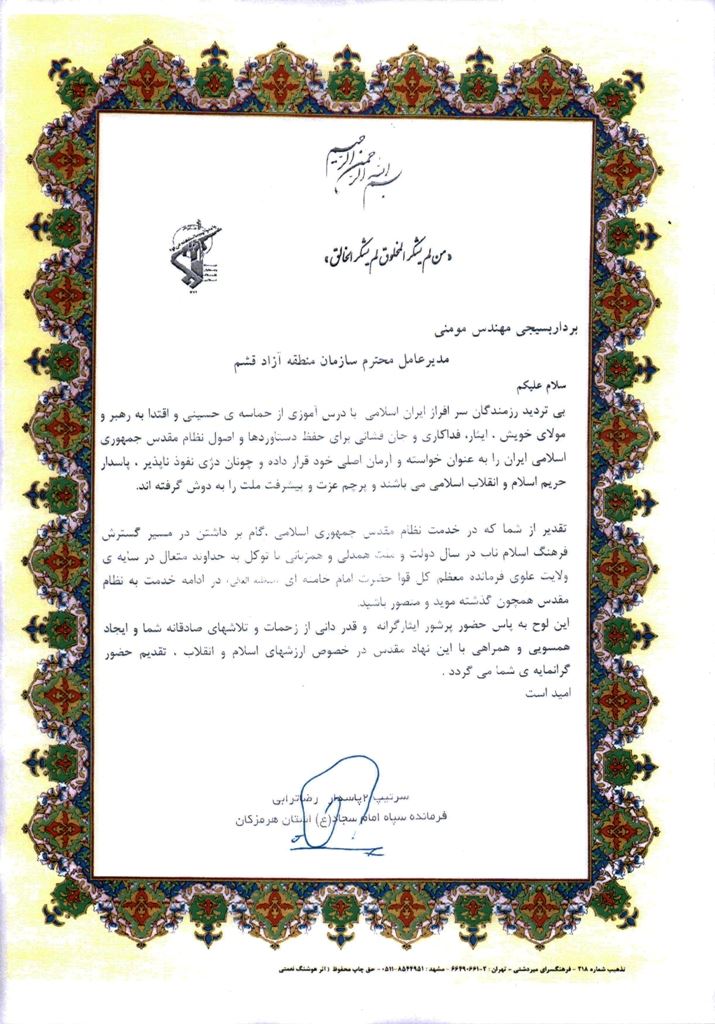 بسم الله الرحمن الرحیم
«من لم یشکر المخلوق لم یشکر الخالق»
برداربسیجی مهندس مومنی
مدیرعامل محترم سازمان منطقه آزاد قشم
سلام علیکم
بی تردید رزمندگان سر افراز ایران اسلامی با درس آموزی از حماسه ی حسینی و اقتدا به رهبر و
مولای خویش ، ایثار، فداکاری و جان فشانی برای حفظ دستاوردها و اصول نظام مقدس جمهوری
اسلامی ایران را به عنوان خواسته و آرمان اصلی خود قرار داده و چونان دژی نفوذ ناپذیر ، پاسدار
حریم اسلام و انقلاب اسلامی می باشند و پرچم عزت و پیشرفت ملت را به دوش گرفته اند.
تقدیر از شما که در خدمت نظام مقدس جمهوری اسلامی ،گام بر داشتن در مسیر گسترش
فرهنگ اسلام ناب در سال دولت و ملت همدلی و همزبانی با توکل به خداوند متعال در سایه ی
ولایت علوی فرمانده معظم کل قوا حضرت امام خامنه ای ، در ادامه خدمت به نظام
مقدس همچون گذشته موید و منصور باشید.
این لوح به پاس حضور پرشور ایثارگرانه و قدر دانی از زحمات و تلاشهای صادقانه شما و ایجاد
همسویی و همراهی با این نهاد مقدس در خصوص ارزشهای اسلام و انقلاب ، تقدیم حضور
گرانمایه ی شما می گردد .
امید است
سرتیپ ۲پاسدار رضاترابی
فرمانده سپاه امام سجاد(ع) استان هرمزگان
تذهیب شماره ۲۱۸ - فرهنگسرای میردشتی - تهران : ۲-۶۶۴۹۰۶۶۱ - مشهد : ۸۵۴۴۹۵۱-۰۵۱۱ - حق چاپ محفوظ ( اثر هوشنگ نعمتی